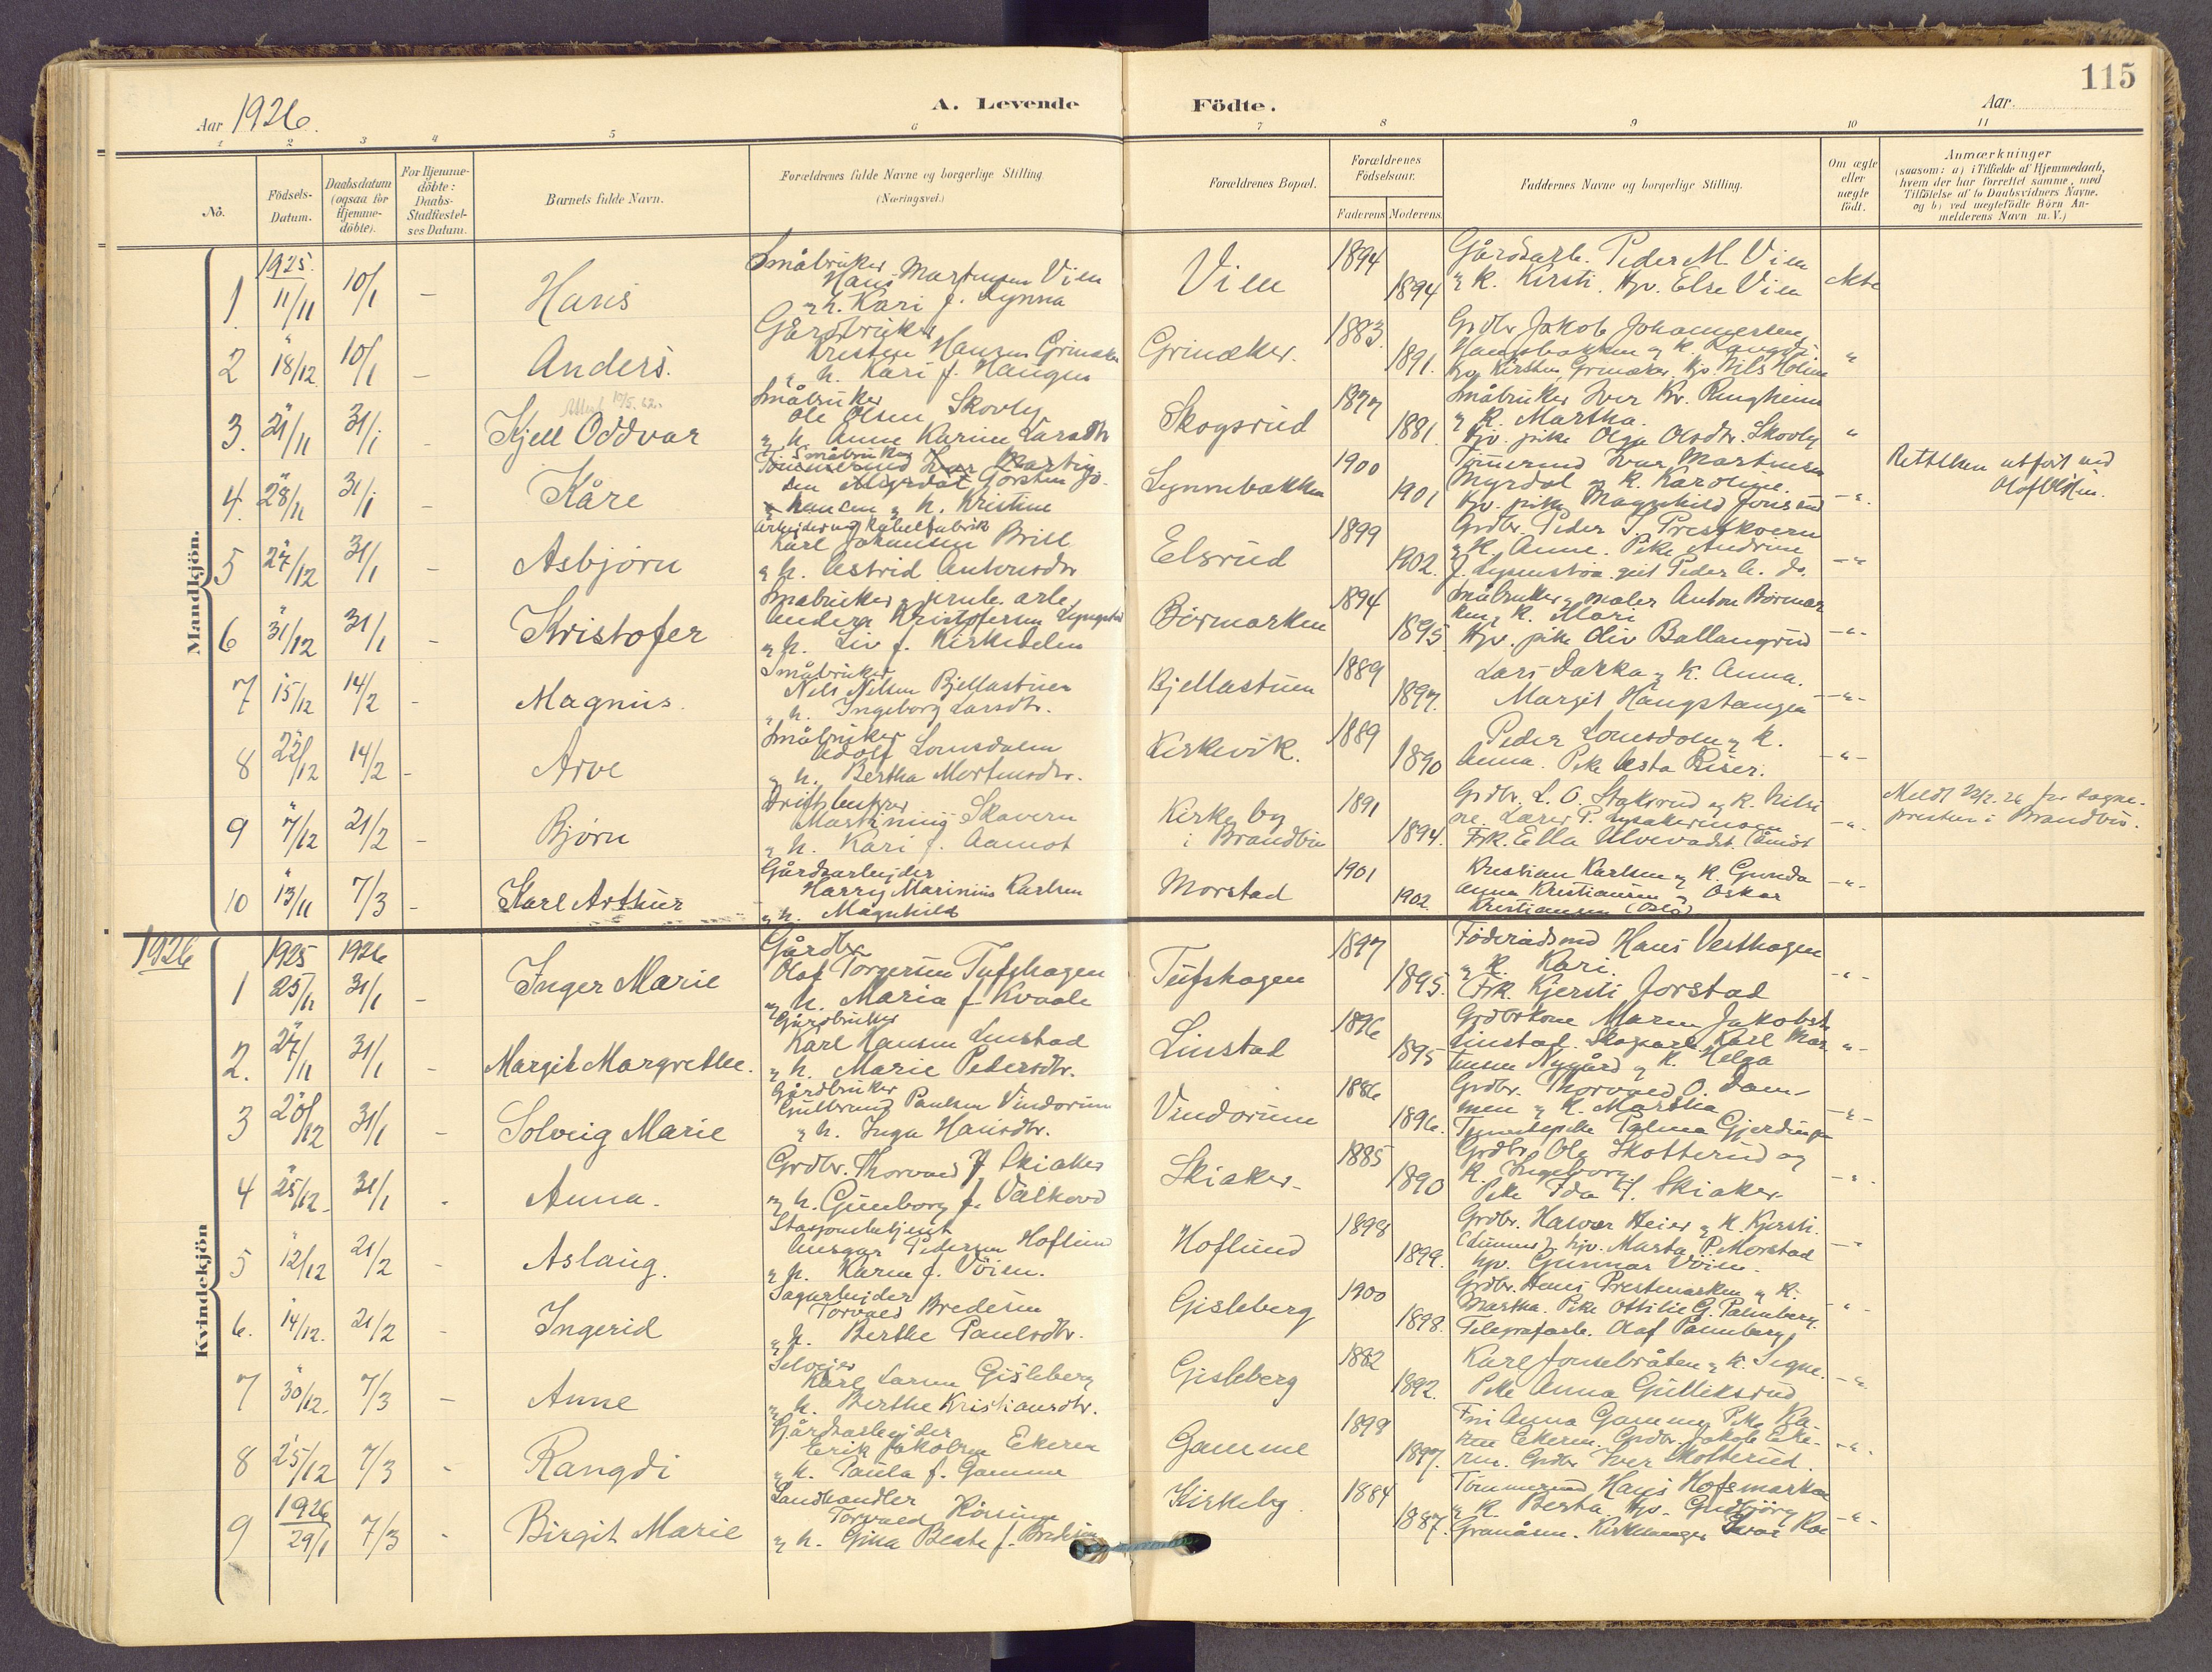 115
Aar 1926.
A. Levende Födte.
Aar
1 2 3 4 5 6 7 8 9 10 11
No.
Födsels-Datum.
Daabsdatum (ogsaa for Hjemmedöbte).
For Hjemmedöbte: Daabs-Stadfæstelses Datum.
Barnets fulde Navn.
Forældrenes fulde Navne og borgerlige Stilling (Næringsvei.)
Forældrenes Bopæl.
Forældrenes Födselsaar.
Faderens Moderens.
Faddernes Navne og borgerlige Stilling.
Om ægte eller uægte födt.
Anmærkninger
(saasom: a) i Tilfælde af Hjemmedaab,
hvem der har forrettet samme, med
Tilföielse af to Daabsvidners Navne.
og b) ved uægtefödte Börn An-
melderens Navn m. V.)
Mandkjön.
1. 1925. 11/11 10/1 – Hans
Småbruker
Hans Martinsen Vien
og h. Kari f. Lynna
Vien 1894 1894
Gårdsarb. Peder M. Vien
og k. Kirsti. Ugv. Else Vien
ekte
2 18/12 10/1 – Anders.
Gårdbruker
Kristen Hansen Grinaker
og h. Kari f. Haugen
Grinaker. 1883. 1891.
Grdbr. Jakob Johannessen
Haugsbakken og k.
Kirsten Grinaker. Nils
"
3. 21/11 31/1 – Kjell Oddvar
Småbruker
Ole Olsen Skovly
og h. Anne Karine Larsdtr
Skogsrud 1877 1881.
Småbruker Iver Kr. Ringheim
og k. Martha.
Ugv. pike Olga Olsdtr. Skovly
"
4. 28/11 31/1 – Kåre
Småbruker
Tömmermd Ivar Martin-
sen Myrdal Torsten Jo-
hansen og h. Kristine
Lynnebakken 1900 1901
Tömmermd Ivar Martinsen
Myrdal og k. Karoline.
Ugv. pike Magnhild
– " –
Rettelsen utfört ved
Olaf Olsen.
5 27/12 31/1 – Asbjørn
Arbeider ved Kabelfabrik
Karl Johansen Brill
og h. Astrid Antonsdtr
Elsrud 1899 1902.
Grdbr. Peder J. Prestkvern
og k. Anne. Pike Andrine
J. Lynnestua. gut Peder A. do.
– " –
6 31/12 31/1 – Kristofer
Småbruker og jernb. arb.
Anders Kristofersen Lyngstad
og h. Liv f. Kirkedelen
Börmarken 1894 1895
Småbruker og maler Anton Börmar
ken og k. Mari
Ugv. pike Oliv Ballangrud
– " –
7 15/12 14/2 – Magnus.
Småbruker
Nils Nilsen Bjellastuen
og h. Ingeborg Larsdtr.
Bjellastuen 1889 1897.
Lars Darka og k. Anna.
Margit Haugstangen
– " –
8 22/12 14/2 – Arve
Småbruker
Adolf Lomsdalen
og h. Bertha Mortensdtr.
Kirkevik. 1889 1890
Peder Lomsdalen og k.
Anna. Pike Asta Riser.
– " –
9 7/12 21/2 – Bjørn
Driftsbestyrer
Martinius Skavern
og h. Kari f. Aamot
Kirkeby
i Brandbu
1891 1894.
Grdbr. L. O. Staksrud og k. Nilsi
ne. Lærer P. Lysakermoen
Frk. Ella
– " –
Meldt 22/2. 26 fra sogne-
presten i Brandbu.
10 13/11 7/3 – Karl Arthur
Gårdsarbeider
Harry Marinius Karlsen
og h. Magnhild
Morstad 1901 1902.
Kristian Karlsen og k. Gunda
Anna Kristiansen og Oskar
Kristiansen (Oslo)
– " –
1926
Kvindekjön
1925 1926
1 25/11 31/1 – Inger Marie
Gårdbr.
Olaf Torgersen Tufshagen
og h. Maria f. Kvaale
Tufshagen 1897 1895.
Föderådsmd Hans Vesthagen
og k. Kari.
Frk. Kjersti Jorstad
– " –
2. 27/11 31/1 – Margit Margrethe.
Gårdbruker
Karl Hansen Linstad
og h. Marie Pedersdtr.
Linstad 1896 1895
Grdbrkone Maren Jakobsdtr
Linstad. Skogsarb. Karl Mar
tinsen Nygård og k. Helga
"
3 20/12 31/1 – Solveig Marie
Gårdbruker
Gulbrand Paulsen Vindorum
og h. Inga Hansdtr.
Vindorum 1886 1896.
Grdbr. Thorvald O. Dam-
men og k. Martha
Palma Gjerdingen
– " –
4 25/12. 31/1 – Anna.
Grdbr. Thorvald J. Skiaker
og h. Gunborg f. Valhovd
Skiaker– 1885 1890
Grdbr. Ole Skotterud og
k. Ingeborg.
Pike Ida J. Skiaker.
– " –
5 12/12 21/2 Aslaug.
Stasjonsbetjent
Ansgar Pedersen Hoflund
og h. Karen f. Vöien.
Hoflund 1898 1899.
Grdbr. Halvor Heier og k. Kjersti.
ugv. Marta P. Morstad
ugv. Gunnar Vöien.
– " –
6. 14/12. 21/2 – Ingerid
Sagarbeider
Torvald Bredesen
og h. Berthe Paulsdtr.
Gisleberg 1900 1898.
Grdbr. Hans Prestmarken og k.
Martha. Pike Ottilie G. Palmberg.
Telegrafarb. Olaf Palmberg
– " –
7 30/12. 7/3 – Anne
Selveier
Karl Larsen Gisleberg
og h. Berthe Kristiansdtr.
Gisleberg 1882 1892.
Karl Jonsebråten og k. Signe.
Pike Anna Gulliksrud
– " –
8 25/12 7/3 – Rangdi
Gårdsarbeider
Erik Jakobsen Ekeren
og h. Paula f. Gamme
Gamme 1898 1897.
Fru Anna Gamme, Pike Ka-
ren Ekeren. Grdbr. Jakob Eke-
ren. Grdbr. Iver Skotterud.
– " –
1926
9 29/1 7/3 – Birgit Marie
Landhandler
Torvald Rösum
og h. Gina Beate f. Bredesen
Kirkeby. 1884 1887.
Tömmermd Hans Hofsmarken
og k. Berta. Ugv. Gudbjörg
Granåsen. Kirkesanger Ivar Roe
– " –